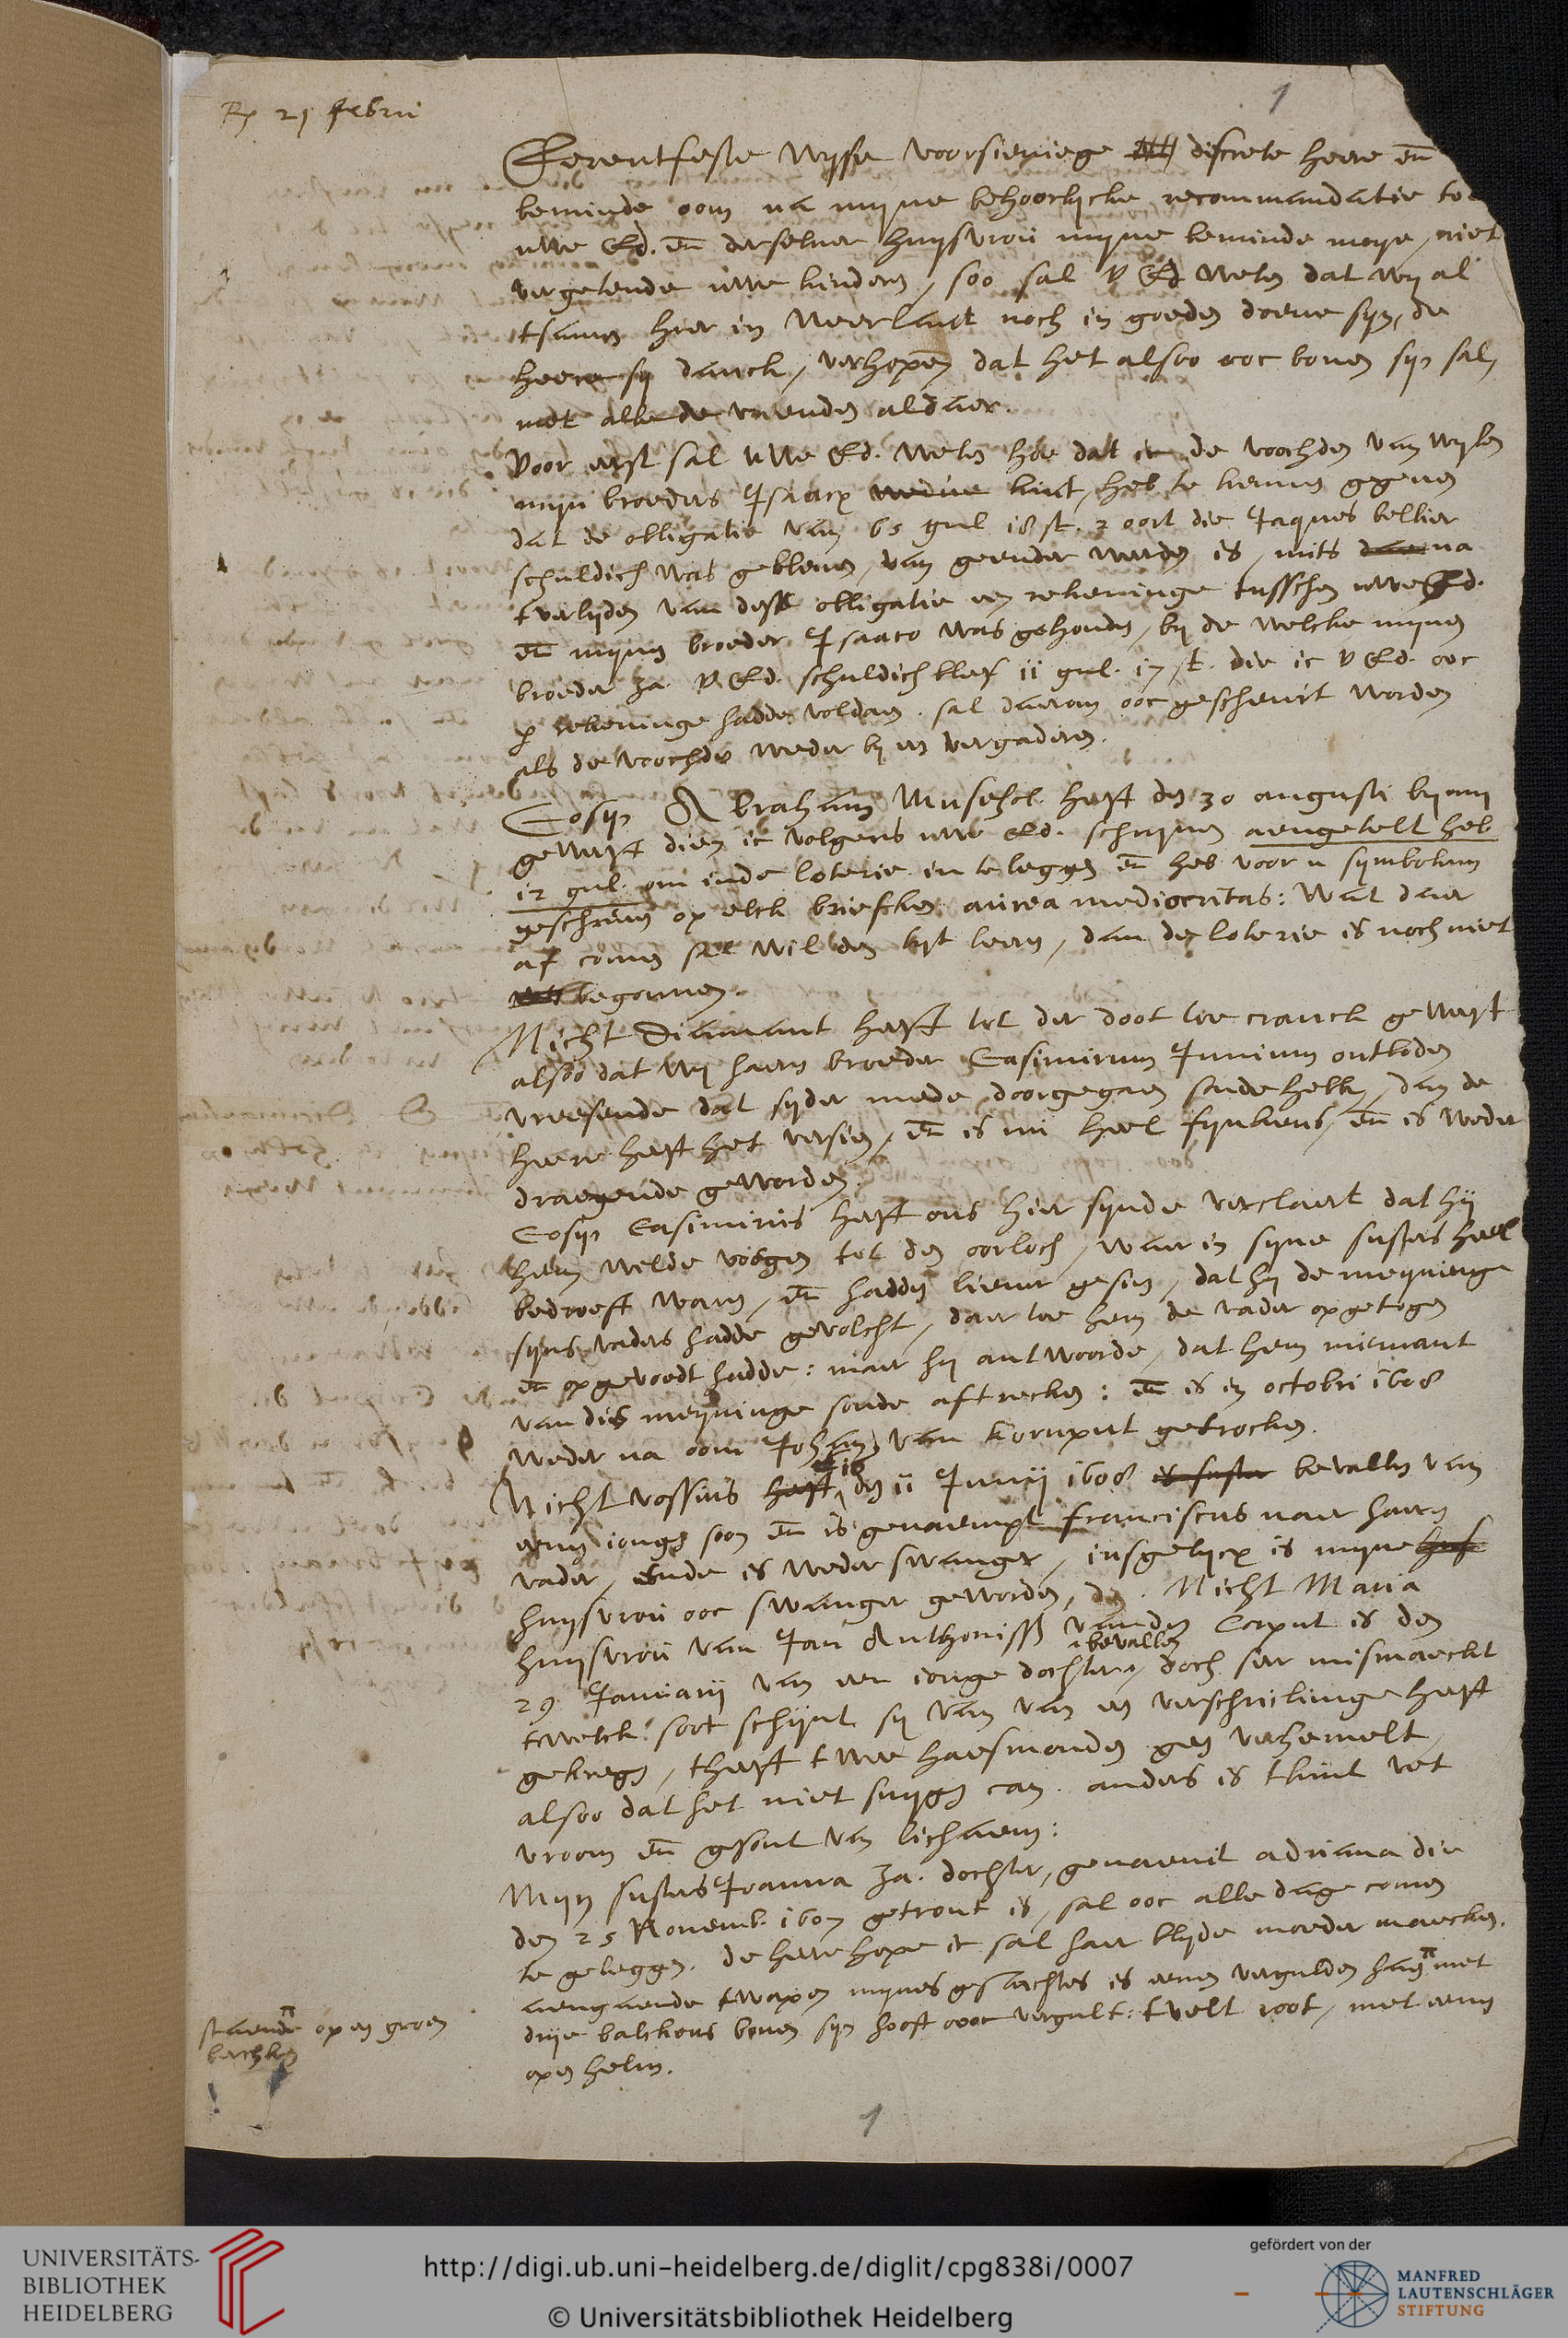 R 21 februi
1
Eerentfeste wijse voorsienige discrete heere en
beminde oom na mijne behoorlijcke recommandatie to
uwe Ed. en derselver huijsvrou mijne beminde moije, niet
vergetende uwe kinderen, soo sal V Ed weten dat wij al
tsamen hier in Neerlant noch in goeden doene sijn, de
heere sij danck, verhopen dat het alsoo ooc boven sijn sal,
met alle de vrienden aldaer.
Voor eerst sal uwe Ed. weten hoe dat ic de voochden van wijlen
mijn broeders Isaacx wedue kint, heb te kennen gegeven
dat de obligatie van 65 gul 18 st. 2 oort die Jaques bellier
schuldich was gebleven, van geender werden is, mits daer na
tverlijden van dese obligatie een rekeninge tusschen uwe Ed.
en mijnen broeder Isaaco was gehouden, bij de welcke mijnen
broeder za. V Ed. schuldich bleef 11 gul. 17 st. die ic V Ed. ooc
p rekeninge hadde voldaen. sal daerom ooc gescheurt worden
als de voochden weder bij een vergaderen.
Cosijn Abraham Musehol. heeft den 30 augusti bij mij
geweest dien ic volgens uwe Ed. schrijven aengetelt heb
12 gul. om inde loterie in te leggen en heb voor u symbolum
geschreven op elck briefken aurea mediocritas: wat daer
af comen sal wil den tijt leeren, dan de loterie is noch niet
begonnen.
Nicht Diamant heeft tot der doot toe cranck geweest
alsoo dat wij haeren broeder Casimirum Junium ontboden
vreesende dat sijder mede doorgegaen soude hebben, dan de
heere heeft het versien, en is nu heel fijnkens, en is weder
draegende geworden.
Cosijn Casimirus heeft ons hier sijnde verclaert dat hij
hem wilde voegen tot den oorloch, waer in sijne susters heel
bedroeft waren, en hadden liever gesien, dat hij de meijninge
sijns vaders hadde gevolcht, daer toe hem de vader opgetogen
en opgevoedt hadde: maer hij antwoorde, dat hem niemant
van dies meijninge soude aftrecken: en is in octobri 1608
weder na oom Johan van Kornput getrocken.
Nicht vossius heeft is den 11 Junij 1608 is suster bevallen van
eenen jongen soon en is genaempt franciscus naer haeren
vader, ende is weder swanger, insgelijcx is mijne huf
huijsvrou ooc swanger geworden, den. Nicht Maria
huijsvrou van Jan Anthoniss vanden Corput is den
29 Januarij van een jonge dochter bevallen, doch seer mismaeckt
twelck soot schijnt sij van van een verschrickinge heeft
gekregen, theeft twee haesmonden geen verhemelt,
alsoo dat het niet suijgen can. anders is tkint vet
vroom en gesont van lichaem:
Mijn susters Joanna za. dochter, genaemt adriana die
den 25 Novemb. 1607 getrout is, sal ooc alle dage comen
te geleggen. de heere hope ic sal haer blijde moeder maecken.
aengaende twapen mijnes geslachtes is eenen vergulden haen met
drije balckens boven sijn hooft ooc vergult: tvelt root, met eenen
open helm.
staende op een groen
berchken
1
UNIVERSITÄTS-
BIBLIOTHEK
HEIDELBERG
http://digi.ub.uni-heidelberg.de/diglit/cpg838i/0007
© Universitätsbibliothek Heidelberg
gefördert von der
MANFRED
LAUTENSCHLÄGER
STIFTUNG